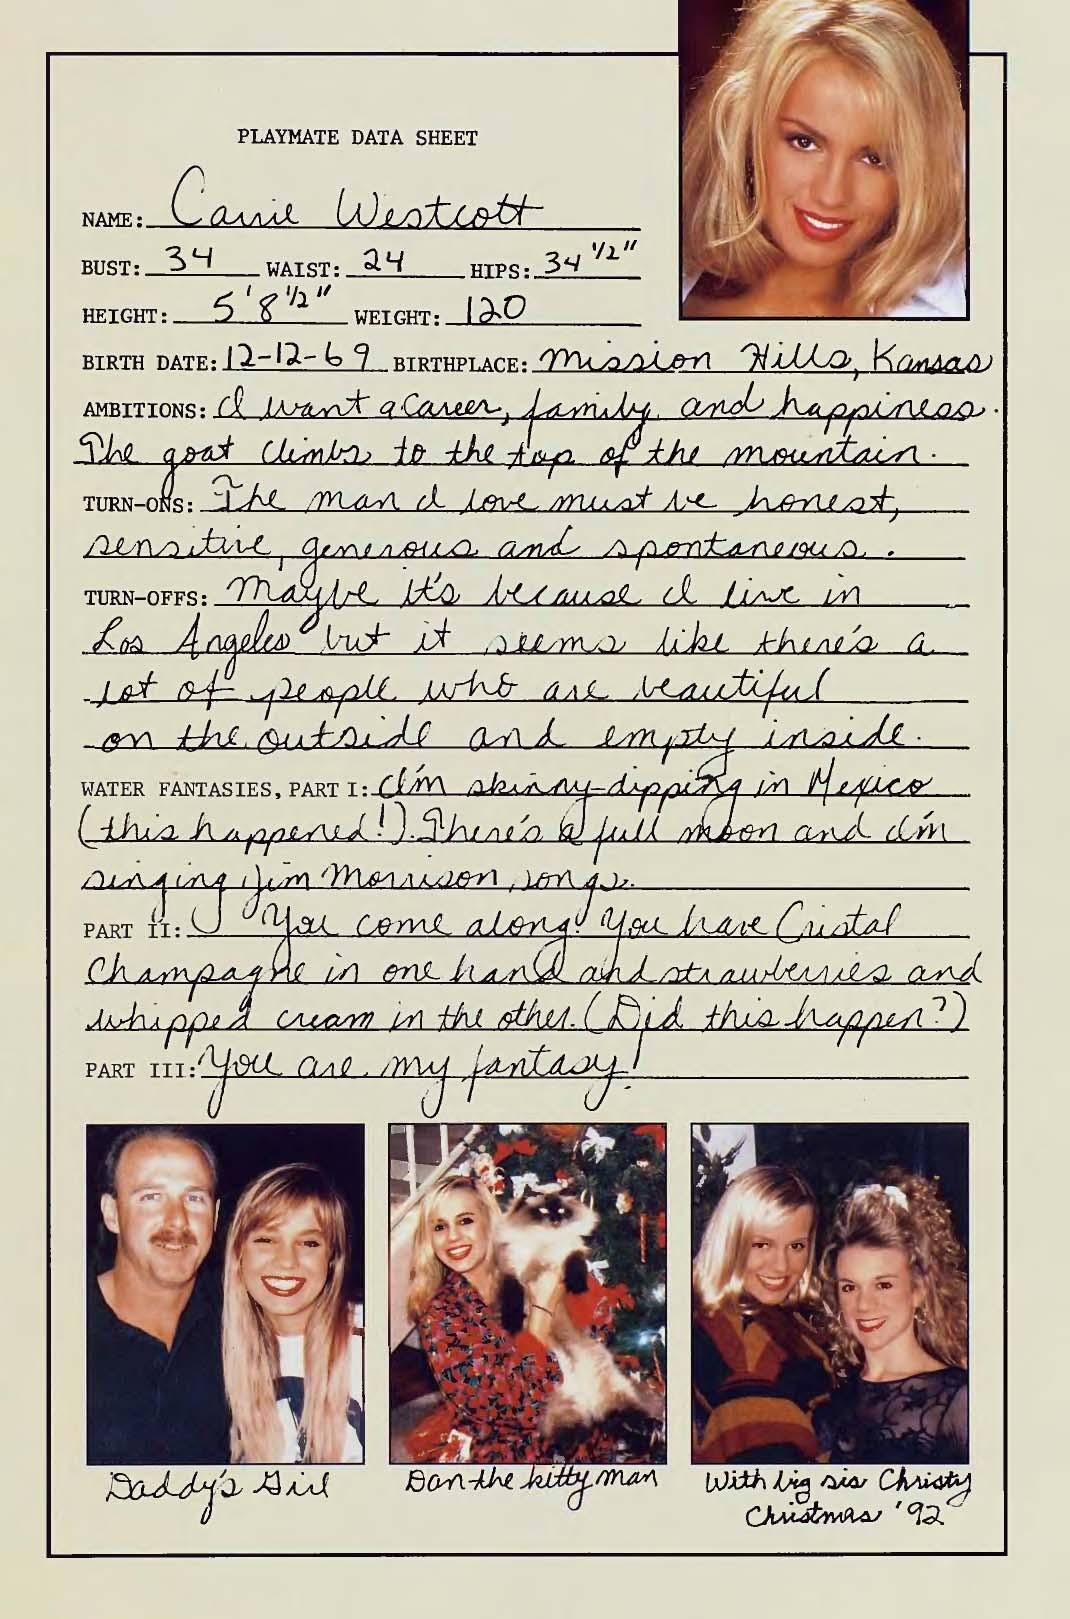 PLAYMATE DATA SHEET
NAME: Carrie Westcott
BUST: 34 WAIST: 24 HIPS: 34 1/2"
HEIGHT: 5'8 1/2" WEIGHT: 120
BIRTH DATE: 12-12-69 BIRTHPLACE: Mission Hills, Kansas
AMBITIONS: I want a career, family and happiness.
The goat climbs to the top of the mountain.
TURN-ONS: The man I love must be honest,
sensitive, generous and spontaneous.
TURN-OFFS: Maybe it's because I live in
Los Angeles but it seems like there's a
lot of people who are beautiful
on the outside and empty inside.
WATER FANTASIES, PART I: I'm skinny-dipping in Mexico
(this happened!). There's a full moon and I'm
singing Jim Morrison songs.
PART II: You come along! You have Cristal
Champagne in one hand and strawberries and
whipped cream in the other. (Did this happen?)
PART III: You are my fantasy!
Daddy's Girl
Dan the kitty man
With big sis Christy
Christmas '92